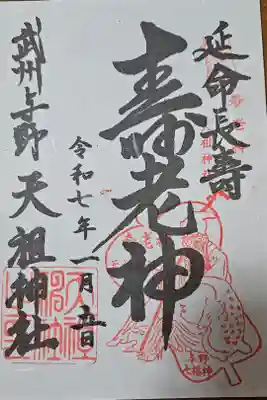 延命長寿
寿老神
令和七年一月吉日
武州与野 天祖神社
与野
七福神